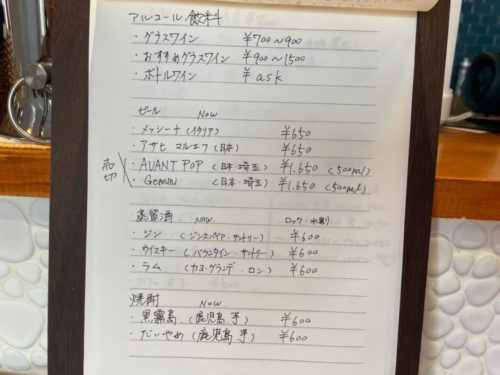 アルコール飲料
・グラスワイン ￥700〜900
・おすすめグラスワイン ￥900〜1500
・ボトルワイン ￥ask
ビール Now
・メッシーナ(イタリア) ￥650
・アサヒ マルエフ(日本) ￥650
売切
・AVANT POP (日本・埼玉) ￥1.650 (500ml)
・Gemini (日本・埼玉) ￥1.650 (500ml)
蒸留酒 Now ロック・水割り
・ジン (ジンスパイア・サントリー) ￥600
・ウイスキー (マウンテイン・サントリー) ￥600
・ラム (カヨ・グランデ・ロン) ￥600
焼酎 Now
・黒霧島 (鹿児島 芋) ￥600
・だいやめ (鹿児島 芋) ￥600